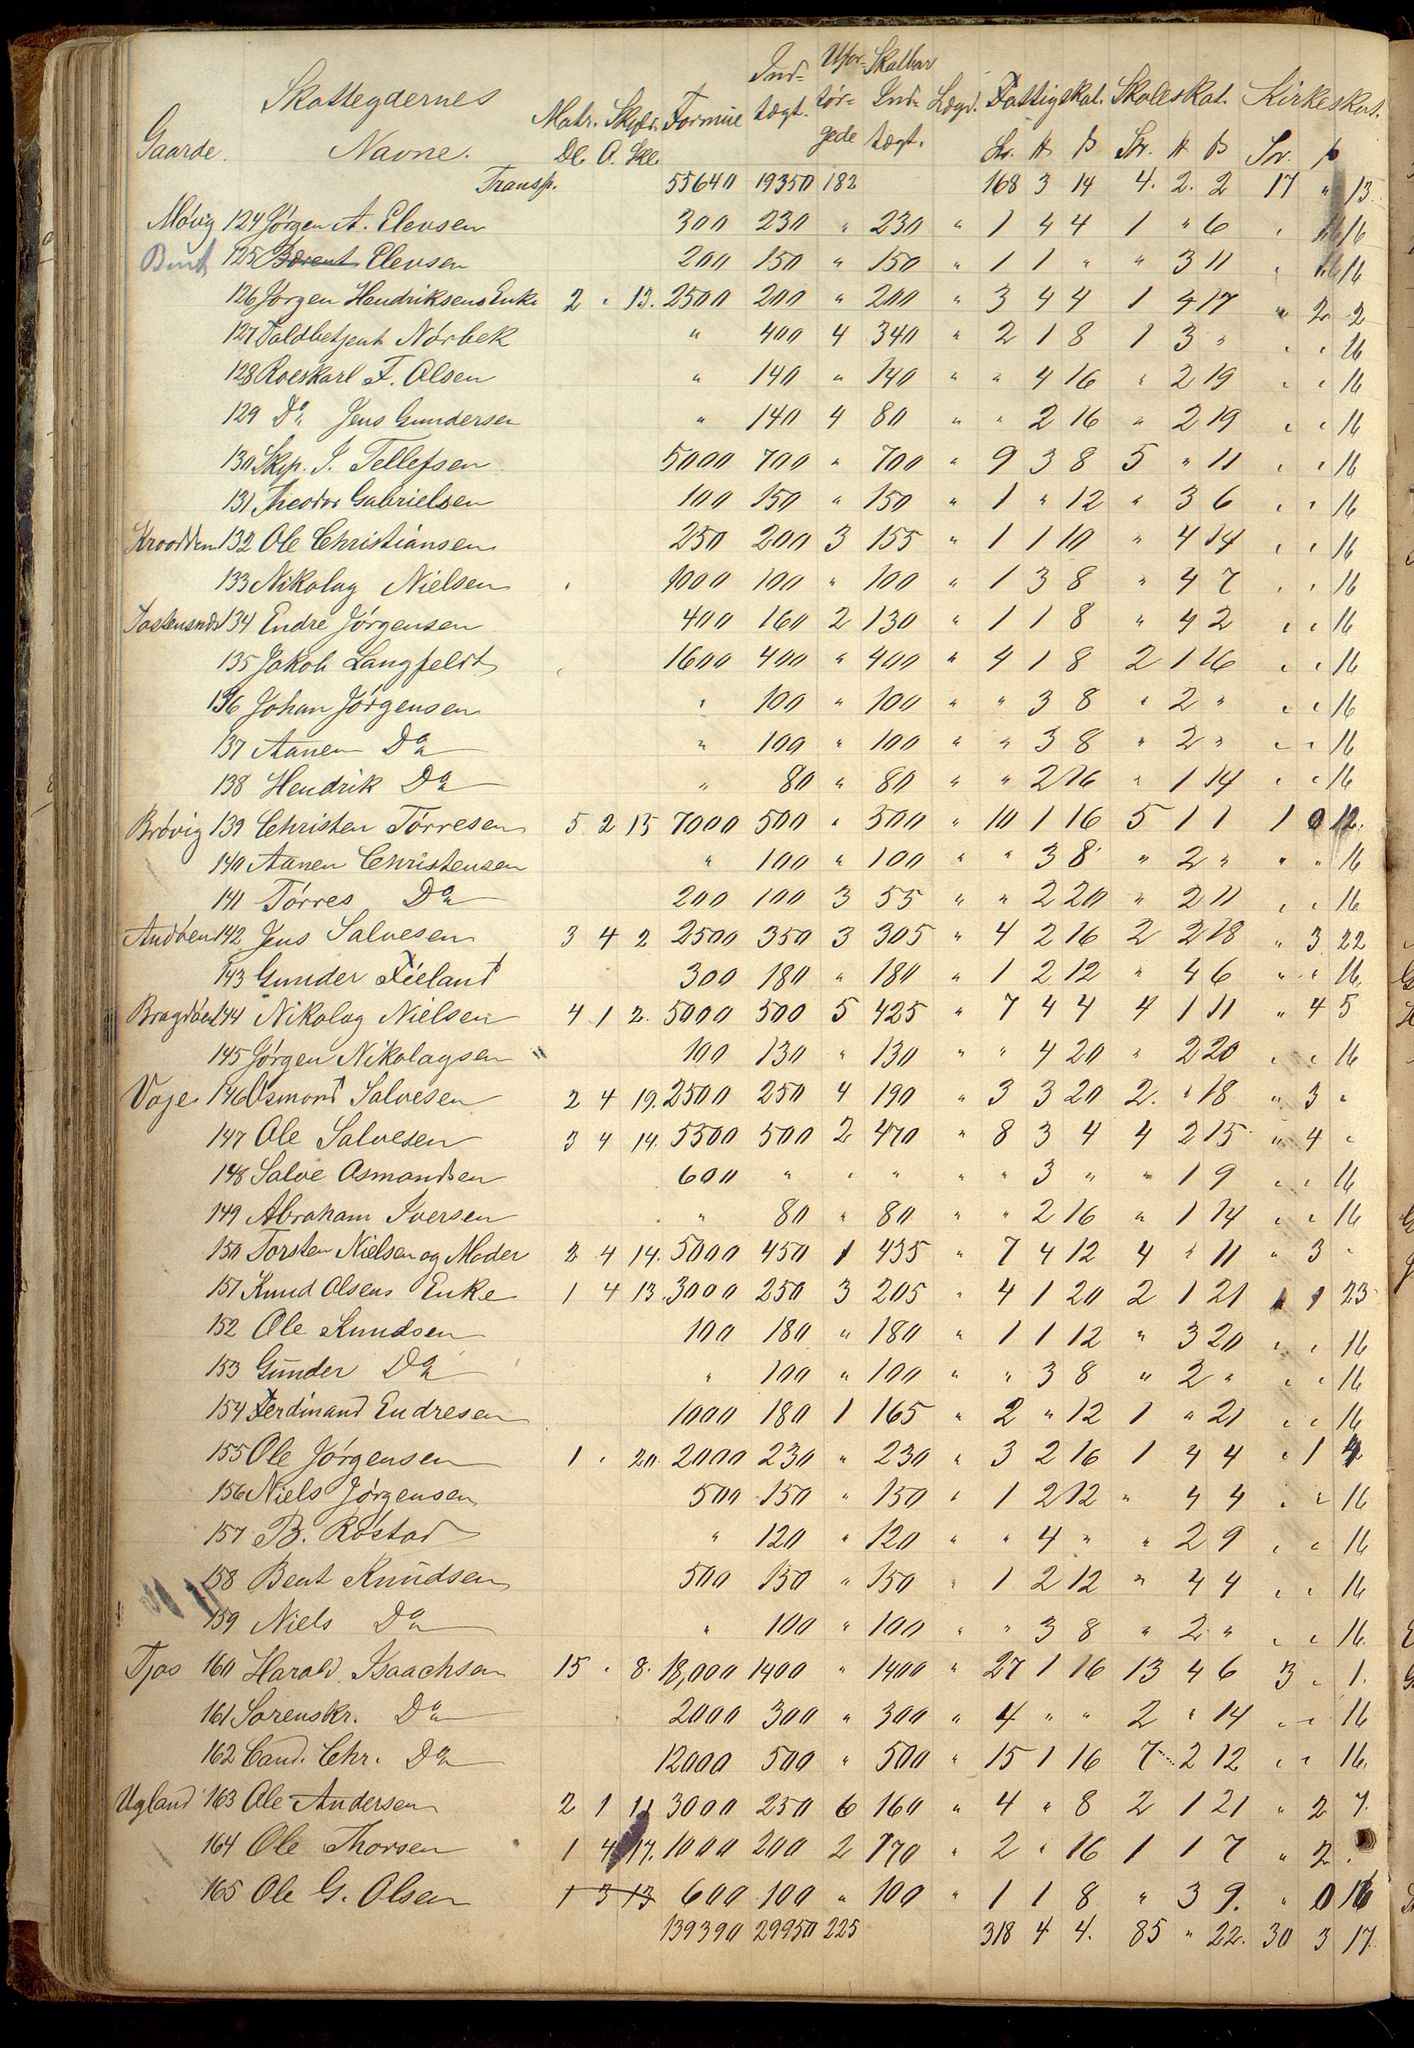 Gaarde. Skatteydernes Navne. Matr. Skyld. Dl. O. Skl. Formue Ind- tægt. Ufor- sør- gede Skatbar Ind- tægt. Lægd. Fattigskat. Skoleskat. Kirkeskat.
Transp. 55640 19350 182 168 3 14 4. 2. 2 17 " 13.
Møvig 124 Jørgen A. Elevsen 300 230 " 230 " 1 4 4 1 " 6 " 16
Bernt 125 Elevsen 200 150 " 150 " 1 1 " " 3 11 " 16
126 Jørgen Hendriksens Enke 2 " 13. 2500 200 " 200 " 3 4 4 1 4 17 " 2 2
127 Toldbetjent Nørbek " 400 4 340 " 2 1 8 1 3 " " " 16
128 Roeskarl F. Olsen " 140 " 140 " " 4 16 " 2 19 " " 16
129 Do Jens Gundersen " 140 4 80 " " 2 16 " 2 19 " " 16
130 Skp. J. Tellefsen 5000 700 " 700 " 9 3 8 5 " 11 " " 16
131 Theodor Gabrielsen 100 150 " 150 " 1 " 12 " 3 6 " " 16
Kroodden 132 Ole Christiansen 250 200 3 155 " 1 1 10 " 4 14 " " 16
133 Nikolay Nielsen 1000 100 " 100 " 1 3 8 " 4 7 " " 16
134 Endre Jørgensen 400 160 2 130 " 1 1 8 " 4 2 " " 16
135 Jakob Langfeldt 1600 400 " 400 " 4 1 8 2 1 16 " " 16
136 Johan Jørgensen " 100 " 100 " " 3 8 " 2 " " " 16
137 Aanen Do " 100 " 100 " " 3 8 " 2 " " " 16
138 Hendrik Do " 80 " 80 " " 2 16 " 1 14 " " 16
Brøvig 139 Christen Tørresen 5 2 15 7000 500 " 500 " 10 1 16 5 1 1 1 0 12.
140 Aanen Christensen " 100 " 100 " " 3 8 " 2 " " " 16
141 Tørres Do 200 100 3 55 " " 2 20 " 2 11 " " 16
Andøen 142 Jens Salvesen 3 4 2 2500 350 3 305 " 4 2 16 2 2 18 " 3 22
143 Gunder Fieland 300 180 " 180 " 1 2 12 " 4 6 " " 16.
Bragdøen 144 Nikolay Nielsen 4 1 2. 5000 500 5 425 " 7 4 4 4 1 11 " 4 5
145 Jørgen Nikolaysen " 100 130 " 130 " " 4 20 " 2 20 " " 16
Vaje 146 Osmond Salvesen 2 4 19. 2500 250 4 190 " 3 3 20 2. " 18 " 3 "
147 Ole Salvesen 3 4 14. 5500 500 2 470 " 8 3 4 4 2 15 " 4 "
148 Salve Osmondsen 600 " " " " " 3 " " 1 9 " " 16
149 Abraham Iversen " 80 " 80 " " 2 16 " 1 14 " " 16
150 Torsten Nielsen og Moder 2 4 14. 5000 450 1 435 " 7 4 12 4 " 11 " 3 "
151 Knud Olsens Enke 1 4 13. 3000 250 3 205 " 4 1 20 2 1 21 1 1 23
152 Ole Knudsen 100 180 " 180 " 1 1 12 " 3 20 " " 16
153 Gunder Do " 100 " 100 " " 3 8 " 2 " " " 16
154 Ferdinand Endresen 1000 180 1 165 " 2 " 12 1 " 21 " " 16
155 Ole Jørgensen 1 " 20. 2000 230 " 230 " 3 2 16 1 4 4 " 1 4
156 Niels Jørgensen 500 150 " 150 " 1 2 12 " 4 4 " " 16
157 B. Røstad " 120 " 120 " " 4 " " 2 9 " " 16
158 Bent Knudsen 500 150 " 150 " 1 2 12 " 4 4 " " 16
159 Niels Do " 100 " 100 " " 3 8 " 2 " " " 16.
Tjos 160 Harald Isaachsen 15 " 8. 18,000 1400 " 1400 " 27 1 16 13 4 6 3 " 1.
161 Sorenskr. Do 2000 300 " 300 " 4 " " 2 " 14 " " 16
162 Cand. Chr. Do 12000 500 " 500 " 15 1 16 7 2 12 " " 16.
Ugland 163 Ole Andersen 2 1 11 3000 250 6 160 " 4 " 8 2 1 21 " 2 7.
164 Ole Thorsen 1 4 17. 1000 200 2 170 " 2 " 16 1 1 7 " 2 .
165 Ole G. Olsen 1 3 13 600 100 " 100 " 1 1 8 " 3 9. " 0 16
139390 29950 225 318 4 4. 85 " 22. 30 3 17.